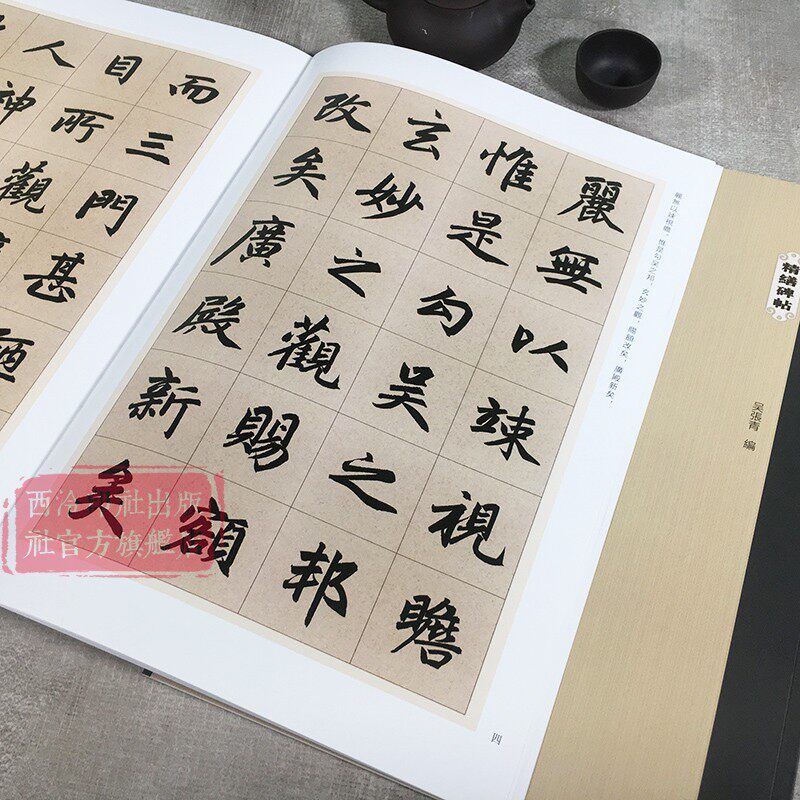 麗無以竦視瞻
惟是勾吳之邦
玄妙之觀賜額
改矣廣殿新矣
而三門甚陋
目所觀
人神
麗無以竦視瞻，惟是勾吳之邦，玄妙之觀，賜額改矣，廣殿新矣，
四
精繕碑帖
吴張青 編
西泠印社出版
社官方旗艦店